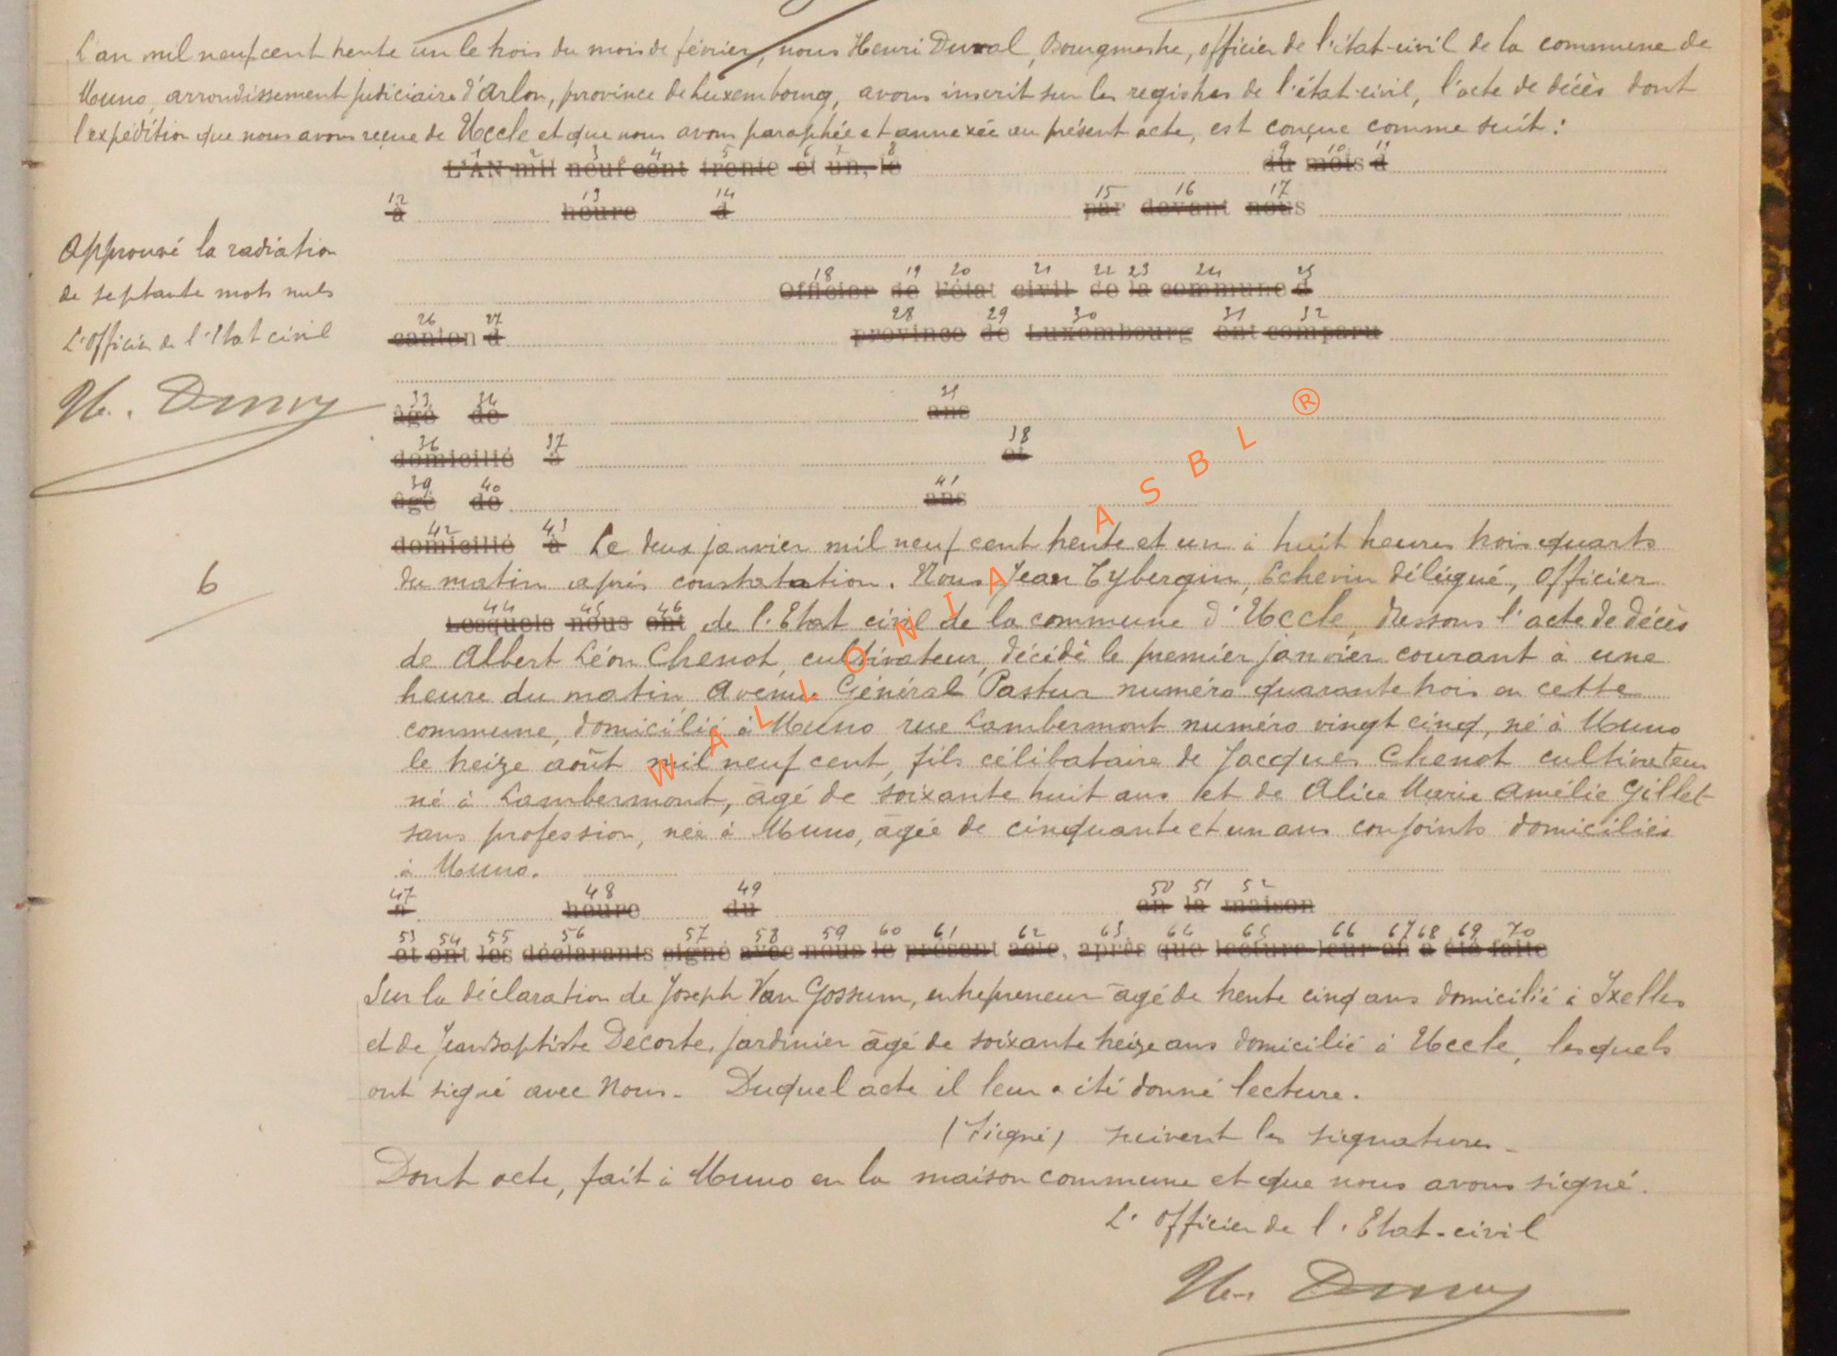 L'an mil neuf cent trente un le trois du mois de février, nous Henri Duval, Bourgmestre, officier de l'état-civil de la commune de
Muno, arrondissement judiciaire d'Arlon, province de Luxembourg, avons inscrit sur les registres de l'état-civil, l'acte de décès dont
l'expédition que nous avons reçue de Uccle et que nous avons paraphée et annexée au présent acte, est conçue comme suit :
1 2 3 4 5 6 7 8 9 10 11
L'AN mil neuf cent trente et un, le du mois d
12 13 14 15 16 17
à heure d par devant nous
Approuvé la radiation
de septante mots nuls
L'Officier de l'Etat civil
18 19 20 21 22 23 24 25
Officier de l'état civil de la commune d
26 27 28 29 30 31 32
canton d province de Luxembourg ont comparu
33 34 35
âgé de ans
36 37 38
domicilié à et
39 40 41
âgé de ans
42 43
domicilié à Le deux janvier mil neuf cent trente et un à huit heures trois quarts
6
du matin après constatation. Nous Jean Tybergin, Echevin délégué, Officier
44 45 46
Lesquels nous ont de l'Etat civil de la commune d'Uccle, dressons l'acte de décès
de Albert Léon Chenot, cultivateur, décédé le premier janvier courant à une
heure du matin Avenue Général Pastur numéro quarante trois en cette
commune, domicilié à Muno rue Lambermont numéro vingt cinq, né à Muno
le treize août mil neuf cent, fils célibataire de Jacques Chenot cultivateur
né à Lambermont, âgé de soixante huit ans et de Alice Marie Amélie Gillet
sans profession, née à Muno, âgée de cinquante et un ans conjoints domiciliés
à Muno.
47 48 49 50 51 52
à heure du en la maison
53 54 55 56 57 58 59 60 61 62 63 64 65 66 67 68 69 70
et ont les déclarants signé avec nous le présent acte, après que lecture leur en a été faite
Sur la déclaration de Joseph Van Gossum, entrepreneur âgé de trente cinq ans domicilié à Ixelles
et de Jean Baptiste Decorte, jardinier âgé de soixante treize ans domicilié à Uccle, lesquels
ont signé avec Nous. Duquel acte il leur a été donné lecture.
(Signé) suivent les signatures.
Dont acte, fait à Muno en la maison commune et que nous avons signé.
L'Officier de l'Etat-civil
WALLONIA ASBL ®